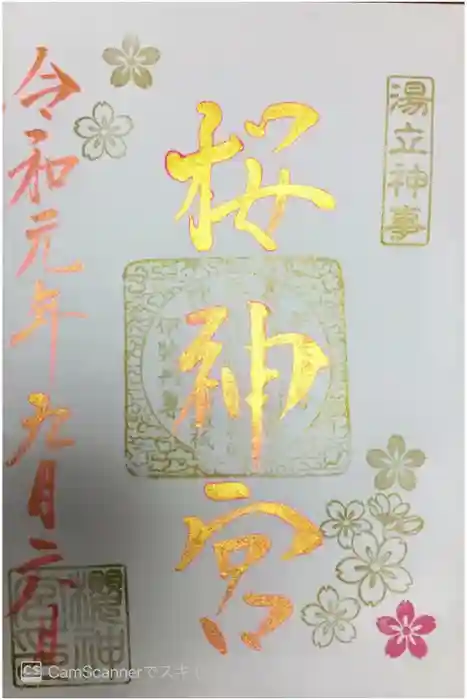 湯立神事
桜神宮
令和元年九月二六日
櫻神宮
CamScannerでスキ